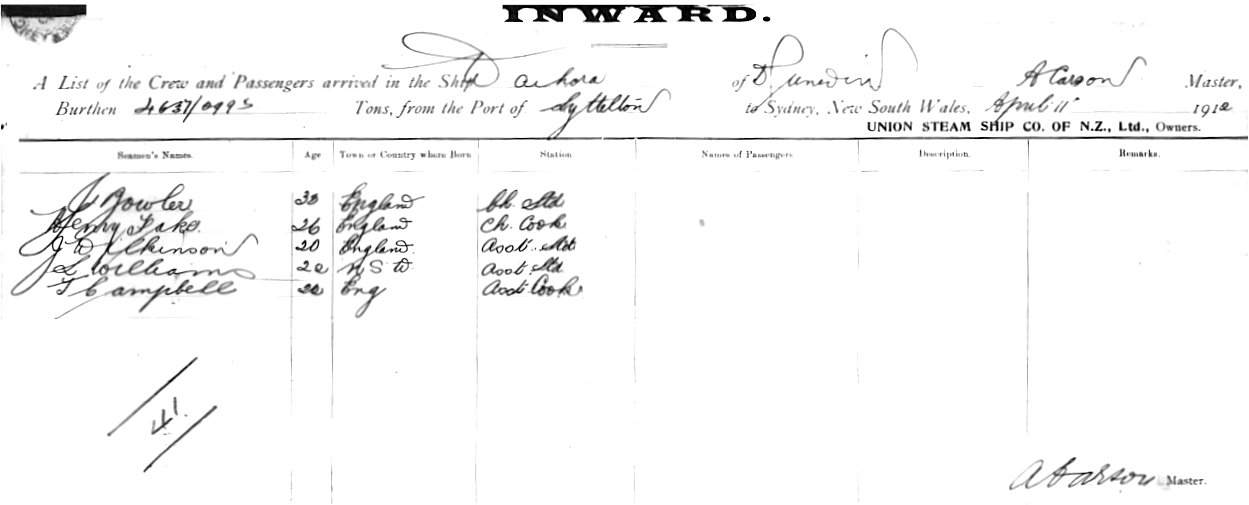 INWARD.
A List of the Crew and Passengers arrived in the Ship Waihora of Dunedin A Carson Master,
Burthen 4637/0993 Tons, from the Port of Lyttelton to Sydney, New South Wales, April 11 1912
UNION STEAM SHIP CO. OF N.Z., Ltd., Owners.
Seamen's Names. Age Town or Country where Born Station Names of Passengers Description. Remarks.
J Bowler 38 England Ch. Std
Henry Fake 26 England Ch. Cook
J Wilkinson 20 England. Asst. Std
S Williams N S W Asst. Std
T Campbell Eng Asst Cook
41.
A Carson Master.